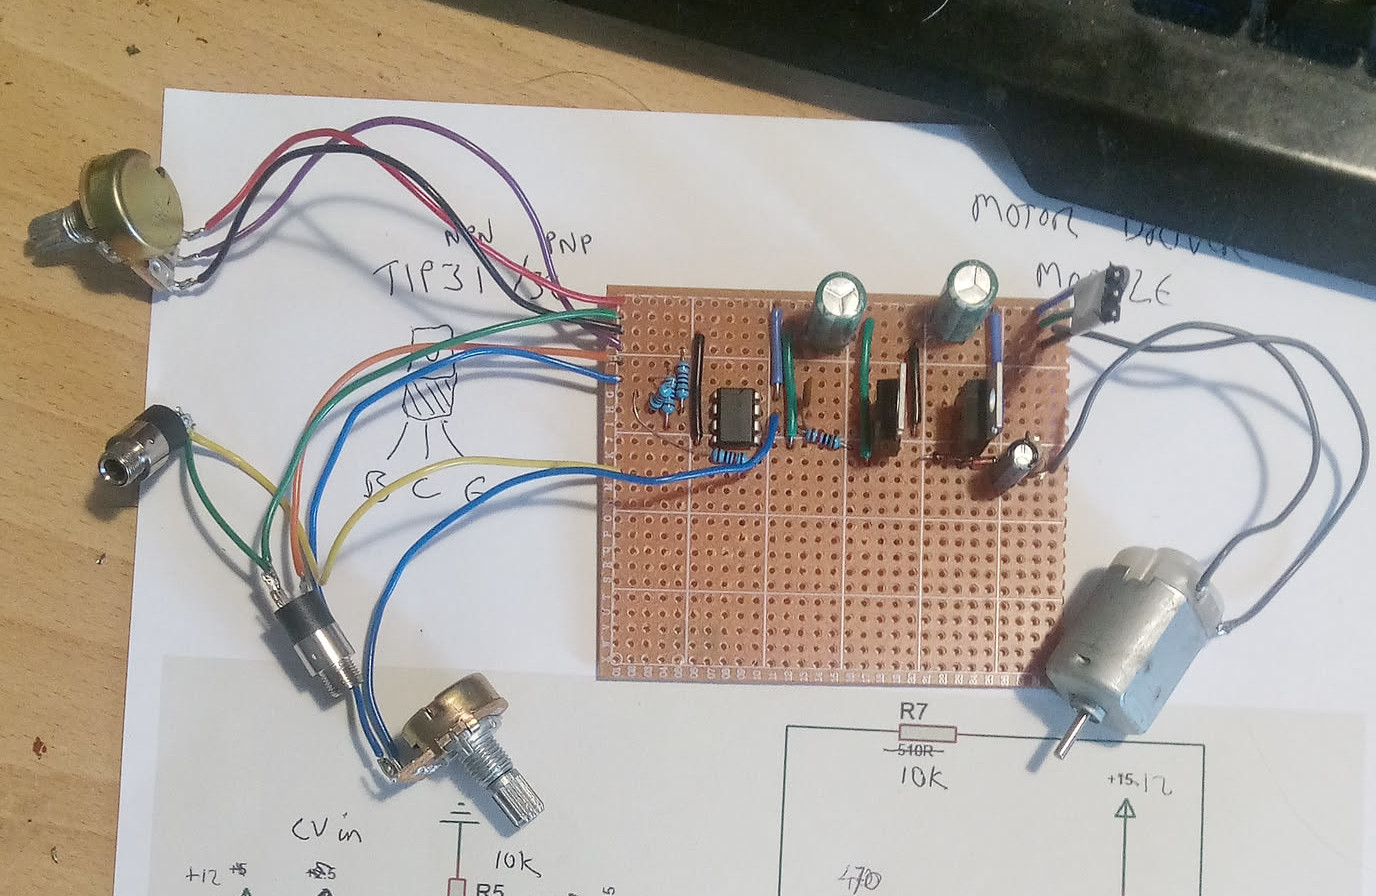 MOTOR DRIVER
NPN PNP
TIP31
B C E
R7
510R
10K
+15 12
CV in
10K
+12
R5
470